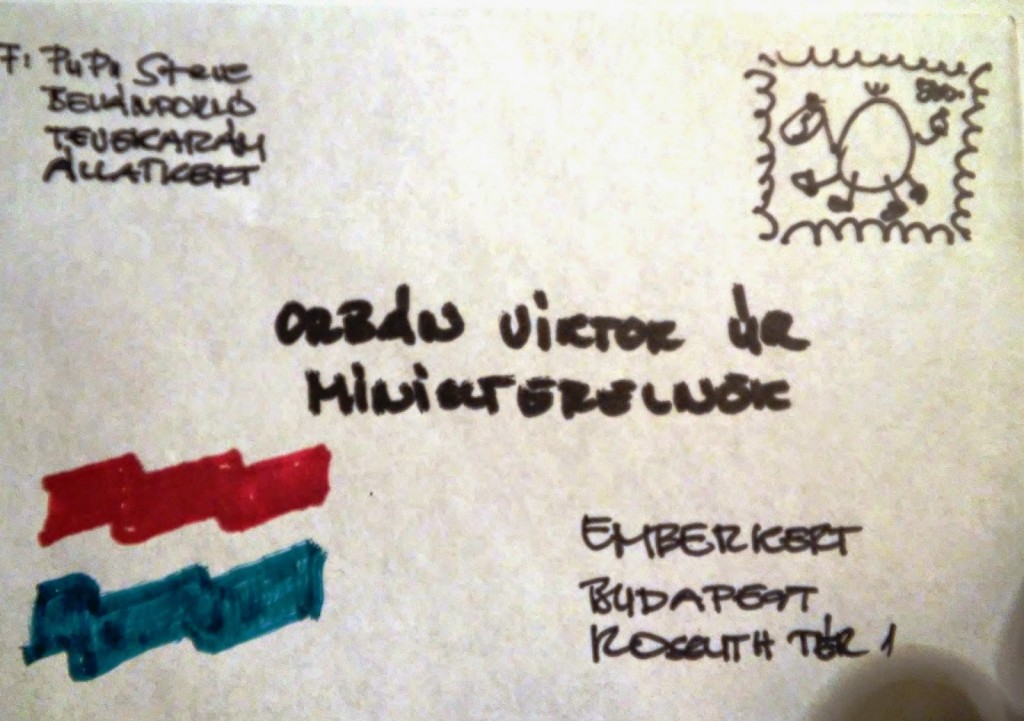 F: PUPU STEVE
TEVEKARÁM
ÁLLATKERT
ORBÁN VIKTOR ÚR
MINISZTERELNÖK
EMBERKERT
BUDAPEST
KOSSUTH TÉR 1